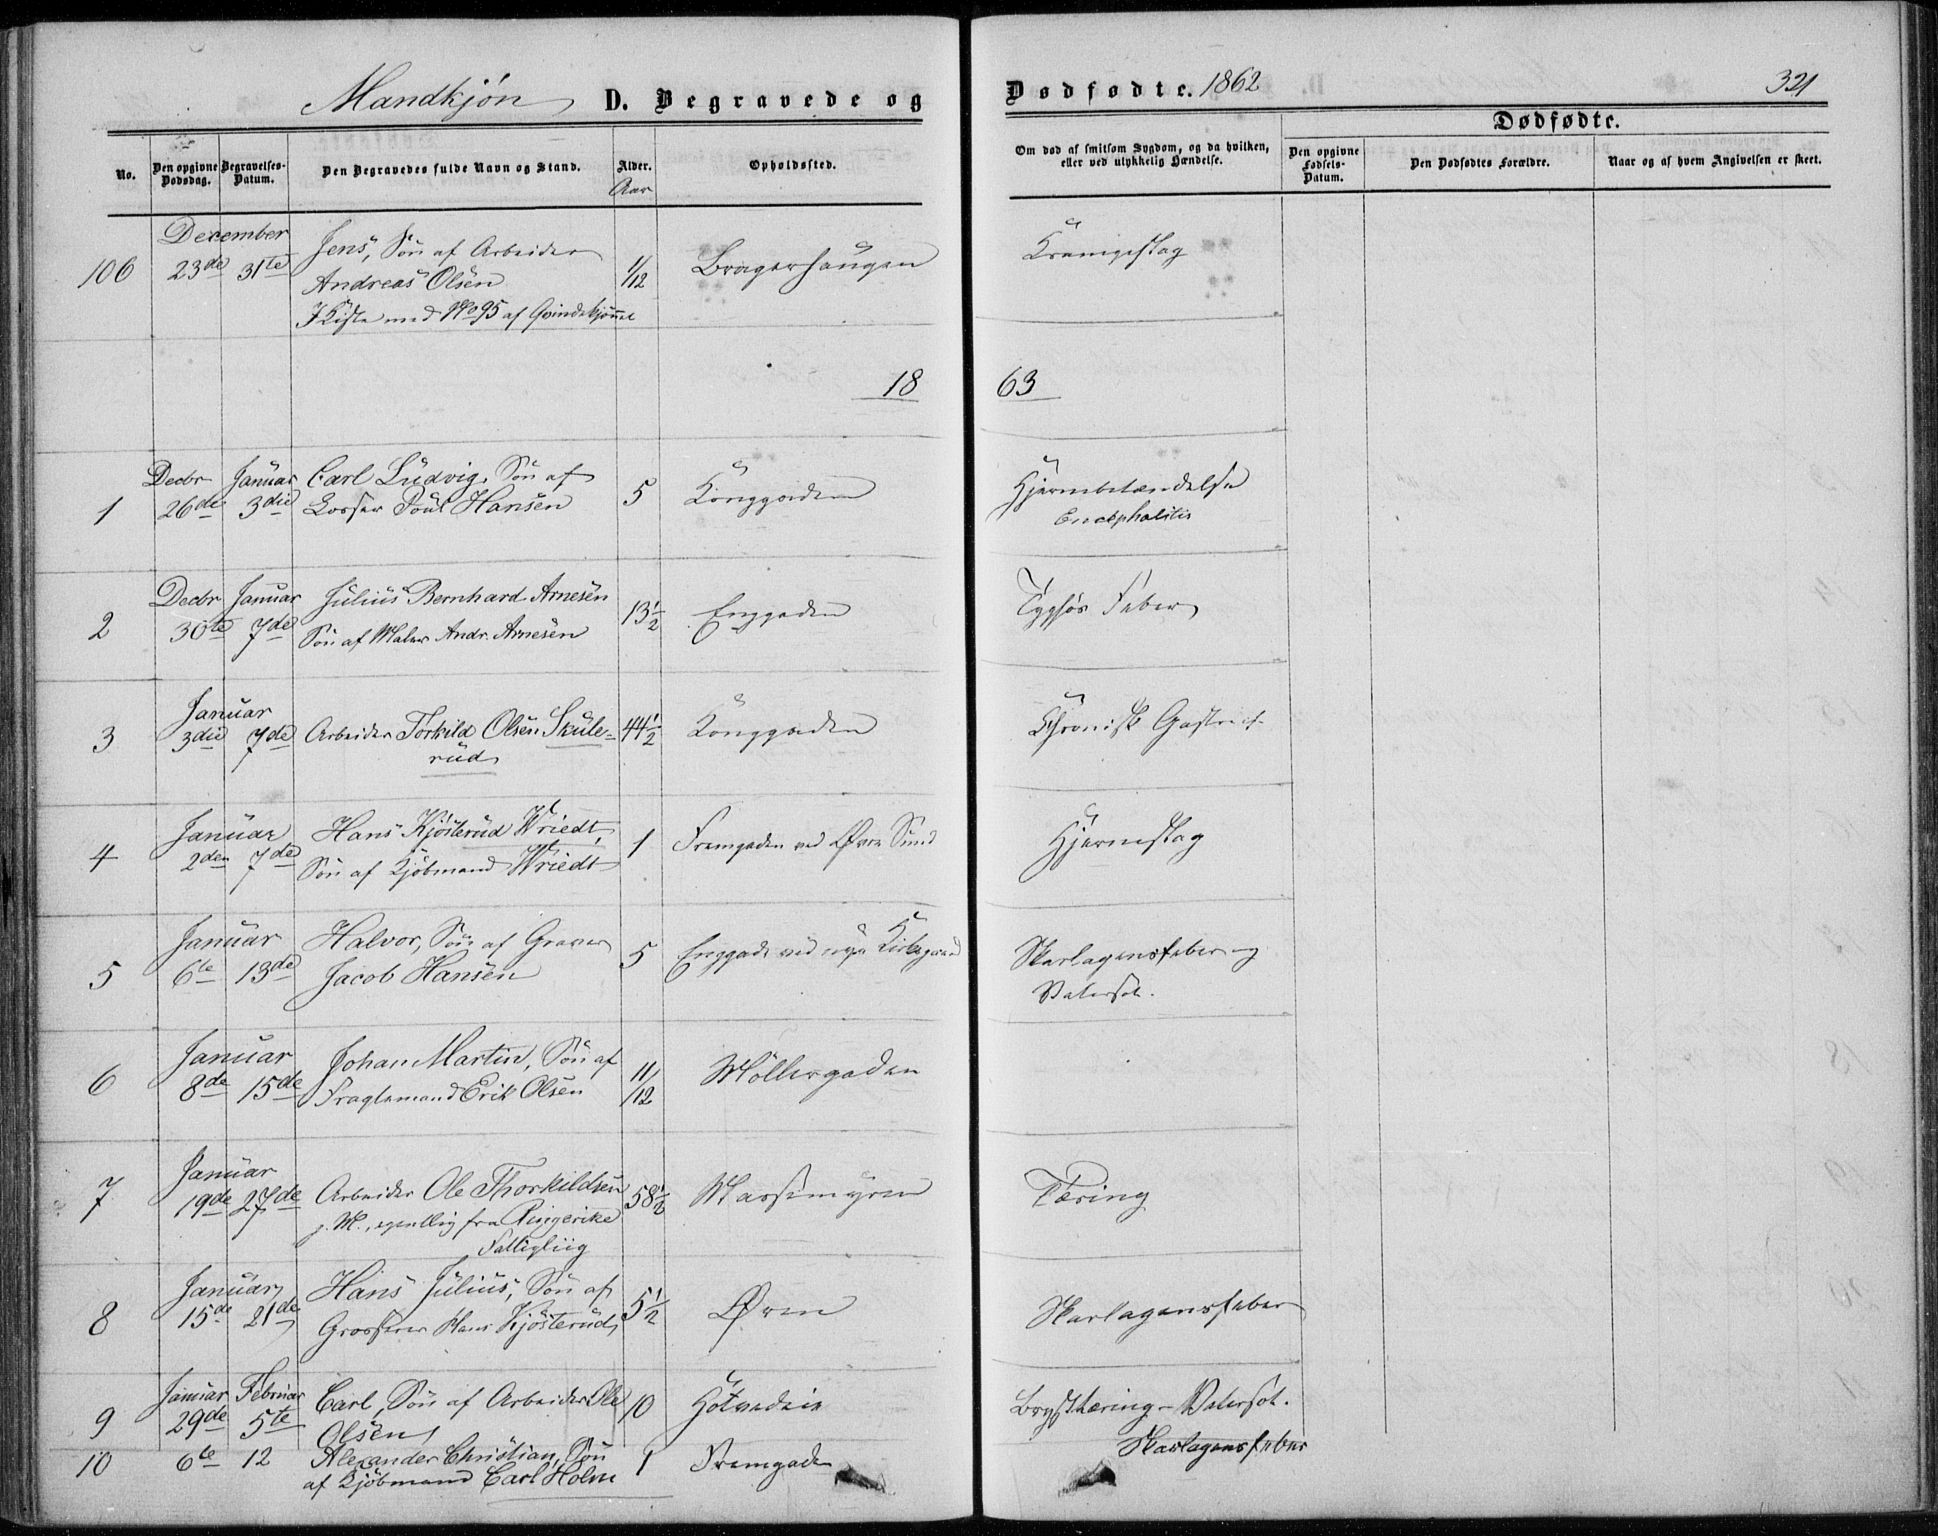 Mandkjön D. Begravede og Dødfødte. 1862 321
Dødfødte.
No. Den opgivne Dødsdag. Begravelses-Datum. Den Begravedes fulde Navn og Stand. Alder. Opholdssted. Om død af smitsom Sygdom, og da hvilken, eller ved ulykkelig Hændelse. Den opgivne Fødsels-Datum. Den Dødfødtes Forældre. Naar og af hvem Angivelsen er skeet.
Aar
December
106 23de 31te Jens, Søn af Arbeider Andreas Olsen 1/12 Bragerhaugen Krampeslag
I Kiste med No 95 af Qvindekjønnet
18 63
Decbr Januar Carl Ludvig, Søn af
1 26de 3die Losser Poul Hansen 5 Konggaden Hjernebetændelse
Encephalitis
Decbr Januar Julius Bernhard Arnesen
2 30te 7de Søn af Maler Andr. Arnesen 13½ Enggaden Typhøs Feber
Januar
3 3die 7de Arbeider Torkild Olsen Skule= 44½ Konggaden Chronisk
rud
Januar Hans Kjösterud Wriedt,
4 2den 7de Søn af Kjöbmand Wriedt 1 Fremgaden ved Øvre Sund Hjerneslag
Januar Halvor, Søn af Graver
5 6te 13de Jacob Hansen 5 Enggade ved nye Kirkegaard Skarlagensfeber og
Vatersot.
Januar Johan Martin, Søn af
6 8de 15de Fragtemand Erik Olsen 11/12 Möllergaden
Januar
7 19de 27de Arbeider Ole Thorkildsen 58½ Tæring
g. M., egentlig fra Ringerike
Fattiglüg
Januar Hans Julius, Søn af
8 15de 21de Grosserer Hans Kjösterud 5½ Øren Skarlagensfeber
Januar Februar Carl, Søn af Arbeider Ole
9 29de 5te Olsen 10 Hotvedeie Brysttæring - Vatersot.
10 6te 12 Alexander Christian, Søn 1 Fremgaden Skarlagensfeber
af Kjöbmand Carl Holm